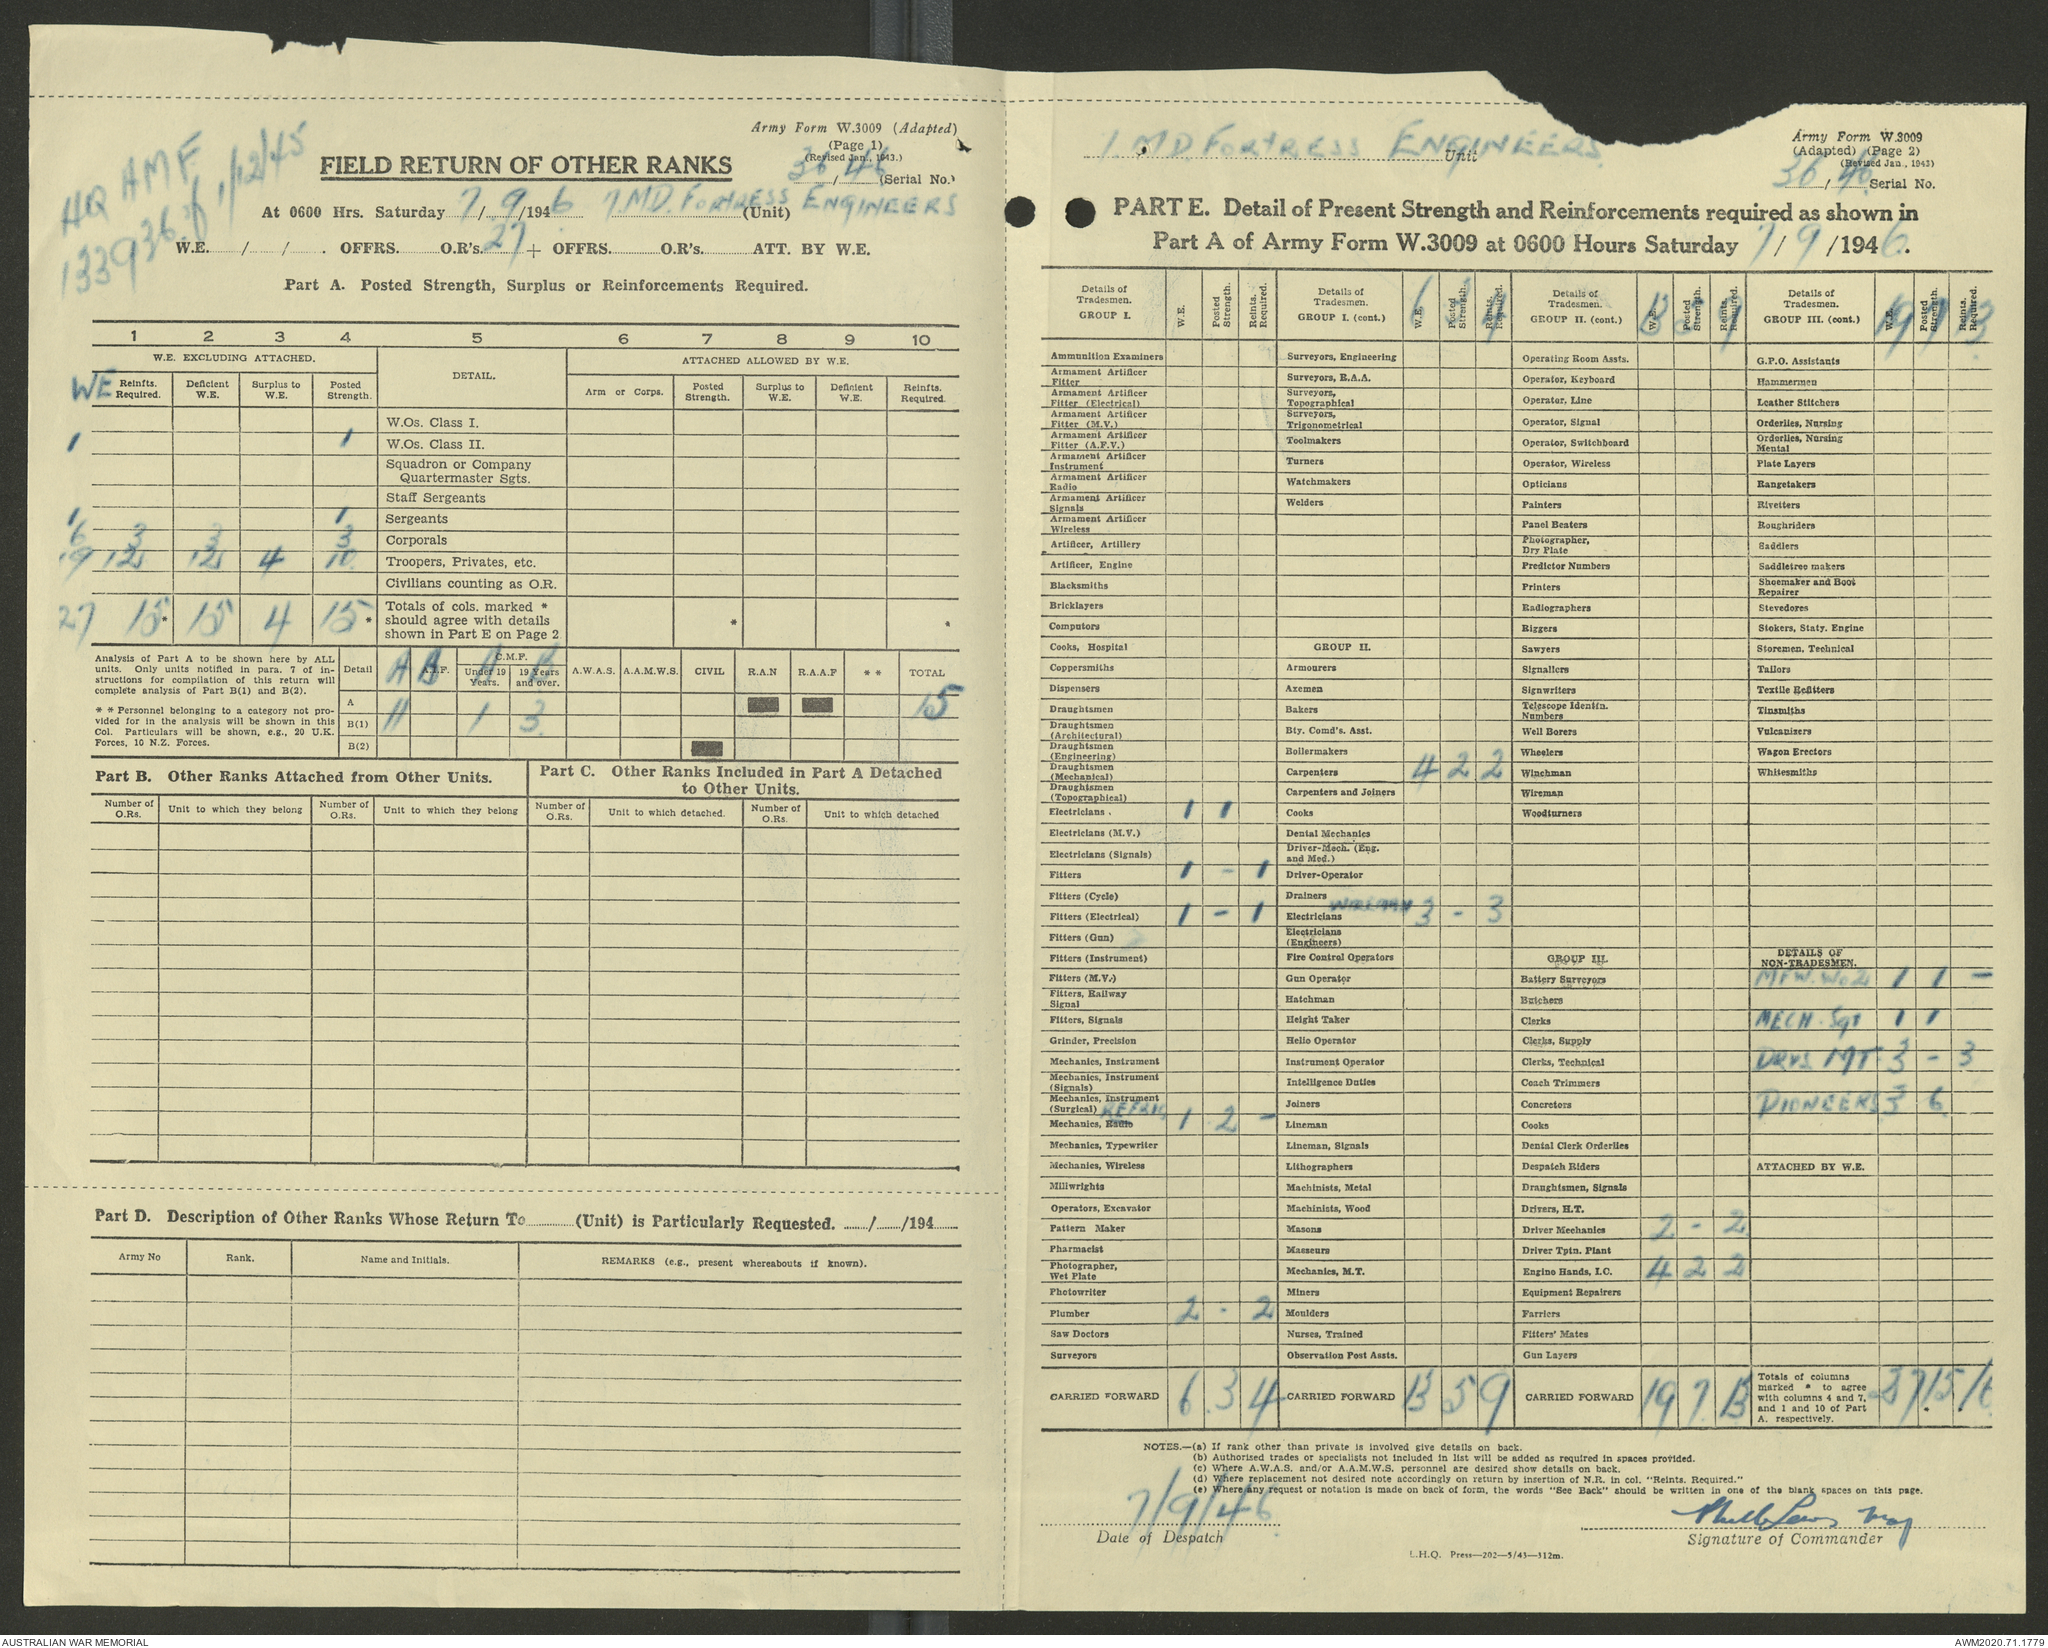 Army Form W.3009 (Adapted)
(Page 1)
(Revised Jan., 1943.)
HQ AMF
133936 1/12/45
FIELD RETURN OF OTHER RANKS
36/46 (Serial No.)
At 0600 Hrs. Saturday 7/9/1946 7.MD. FORTRESS (Unit) ENGINEERS
W.E. / / . OFFRS. O.R's. 27 + OFFRS. O.R's. ATT. BY W.E.
Part A. Posted Strength, Surplus or Reinforcements Required.
1 2 3 4 5 6 7 8 9 10
W.E. EXCLUDING ATTACHED. DETAIL. ATTACHED ALLOWED BY W.E.
WE Reinfts. Required. Deficient W.E. Surplus to W.E. Posted Strength. Arm or Corps. Posted Strength. Surplus to W.E. Deficient W.E. Reinfts. Required.
W.Os. Class I.
1 1 W.Os. Class II.
Squadron or Company Quartermaster Sgts.
Staff Sergeants
1 1 Sergeants
6 3 3 3 Corporals
19 12 12 4 10 Troopers, Privates, etc.
Civilians counting as O.R.
27 15* 15 4 15* Totals of cols. marked * should agree with details shown in Part E on Page 2 * *
Analysis of Part A to be shown here by ALL units. Only units notified in para. 7 of instructions for compilation of this return will complete analysis of Part B(1) and B(2).
* * Personnel belonging to a category not provided for in the analysis will be shown in this Col. Particulars will be shown, e.g., 20 U.K. Forces, 10 N.Z. Forces.
Detail A.I.F. C.M.F. Under 19 Years. 19 Years and over. A.W.A.S. A.A.M.W.S. CIVIL R.A.N R.A.A.F * * TOTAL
A 15
B(1) 11 1 3
B(2)
Part B. Other Ranks Attached from Other Units.
Part C. Other Ranks Included in Part A Detached to Other Units.
Number of O.Rs. Unit to which they belong Number of O.Rs. Unit to which they belong Number of O.Rs. Unit to which detached. Number of O.Rs. Unit to which detached
Part D. Description of Other Ranks Whose Return To (Unit) is Particularly Requested. / /194
Army No Rank. Name and Initials. REMARKS (e.g., present whereabouts if known).
7.MD. FORTRESS ENGINEERS Unit
Army Form W.3009
(Adapted) (Page 2)
(Revised Jan., 1943)
36/46 Serial No.
PART E. Detail of Present Strength and Reinforcements required as shown in
Part A of Army Form W.3009 at 0600 Hours Saturday 7/9/1946.
Details of Tradesmen. GROUP I. W.E. Posted Strength. Reints. Required.
Ammunition Examiners
Armament Artificer Fitter
Armament Artificer Fitter (Electrical)
Armament Artificer Fitter (M.V.)
Armament Artificer Fitter (A.F.V.)
Armament Artificer Instrument
Armament Artificer Radio
Armament Artificer Signals
Armament Artificer Wireless
Artificer, Artillery
Artificer, Engine
Blacksmiths
Bricklayers
Computors
Cooks, Hospital
Coppersmiths
Dispensers
Draughtsmen
Draughtsmen (Architectural)
Draughtsmen (Engineering)
Draughtsmen (Mechanical)
Draughtsmen (Topographical)
Electricians 1 1
Electricians (M.V.)
Electricians (Signals)
Fitters 1 - 1
Fitters (Cycle)
Fitters (Electrical) 1 - 1
Fitters (Gun)
Fitters (Instrument)
Fitters (M.V.)
Fitters, Railway Signal
Fitters, Signals
Grinder, Precision
Mechanics, Instrument
Mechanics, Instrument (Signals)
Mechanics, Instrument (Surgical)
Mechanics, Radio REFRIG 1 2 -
Mechanics, Typewriter
Mechanics, Wireless
Millwrights
Operators, Excavator
Pattern Maker
Pharmacist
Photographer, Wet Plate
Photowriter
Plumber 2 - 2
Saw Doctors
Surveyors
CARRIED FORWARD 6 3 4
Details of Tradesmen. GROUP I. (cont.) W.E. Posted Strength. Reints. Required. 6 3 4
Surveyors, Engineering
Surveyors, R.A.A.
Surveyors, Topographical
Surveyors, Trigonometrical
Toolmakers
Turners
Watchmakers
Welders
GROUP II.
Armourers
Axemen
Bakers
Bty. Comd's. Asst.
Boilermakers
Carpenters 4 2 2
Carpenters and Joiners
Cooks
Dental Mechanics
Driver-Mech. (Eng. and Med.)
Driver-Operator
Drainers
Electricians WIREMAN 3 - 3
Electricians (Engineers)
Fire Control Operators
Gun Operator
Hatchman
Height Taker
Hello Operator
Instrument Operator
Intelligence Duties
Joiners
Lineman
Lineman, Signals
Lithographers
Machinists, Metal
Machinists, Wood
Masons
Masseurs
Mechanics, M.T.
Miners
Moulders
Nurses, Trained
Observation Post Assts.
CARRIED FORWARD 13 5 9
Details of Tradesmen. GROUP II. (cont.) W.E. Posted Strength. Reints. Required. 13 5 9
Operating Room Assts.
Operator, Keyboard
Operator, Line
Operator, Signal
Operator, Switchboard
Operator, Wireless
Opticians
Painters
Panel Beaters
Photographer, Dry Plate
Predictor Numbers
Printers
Radiographers
Riggers
Sawyers
Signallers
Signwriters
Telescope Identin. Numbers
Well Borers
Wheelers
Winchman
Wireman
Woodturners
GROUP III.
Battery Surveyors
Butchers
Clerks
Clerks, Supply
Clerks, Technical
Coach Trimmers
Concretors
Cooks
Dental Clerk Orderlies
Despatch Riders
Draughtsmen, Signals
Drivers, H.T.
Driver Mechanics 2 - 2
Driver Tptn. Plant
Engine Hands, I.C. 4 2 2
Equipment Repairers
Farriers
Fitters' Mates
Gun Layers
CARRIED FORWARD 19 7 13
Details of Tradesmen. GROUP III. (cont.) W.E. Posted Strength. Reints. Required. 19 7 13
G.P.O. Assistants
Hammermen
Leather Stitchers
Orderlies, Nursing
Orderlies, Nursing Mental
Plate Layers
Rangetakers
Rivetters
Roughriders
Saddlers
Saddletree makers
Shoemaker and Boot Repairer
Stevedores
Stokers, Staty. Engine
Storemen, Technical
Tailors
Textile Refitters
Tinsmiths
Vulcanizers
Wagon Erectors
Whitesmiths
DETAILS OF NON-TRADESMEN.
MFW. Wo2 1 1 -
MECH. Sgt 1 1
DRVS MT 3 - 3
PIONEERS 3 6
ATTACHED BY W.E.
Totals of columns marked * to agree with columns 4 and 7, and 1 and 10 of Part A. respectively. 27 15 16
NOTES.—(a) If rank other than private is involved give details on back.
(b) Authorised trades or specialists not included in list will be added as required in spaces provided.
(c) Where A.W.A.S. and/or A.A.M.W.S. personnel are desired show details on back.
(d) Where replacement not desired note accordingly on return by insertion of N.R. in col. "Reints. Required."
(e) Where any request or notation is made on back of form, the words "See Back" should be written in one of the blank spaces on this page.
7/9/46
Date of Despatch
Maj
Signature of Commander
L.H.Q. Press—202—5/43—112m.
AUSTRALIAN WAR MEMORIAL
AWM2020.71.1779